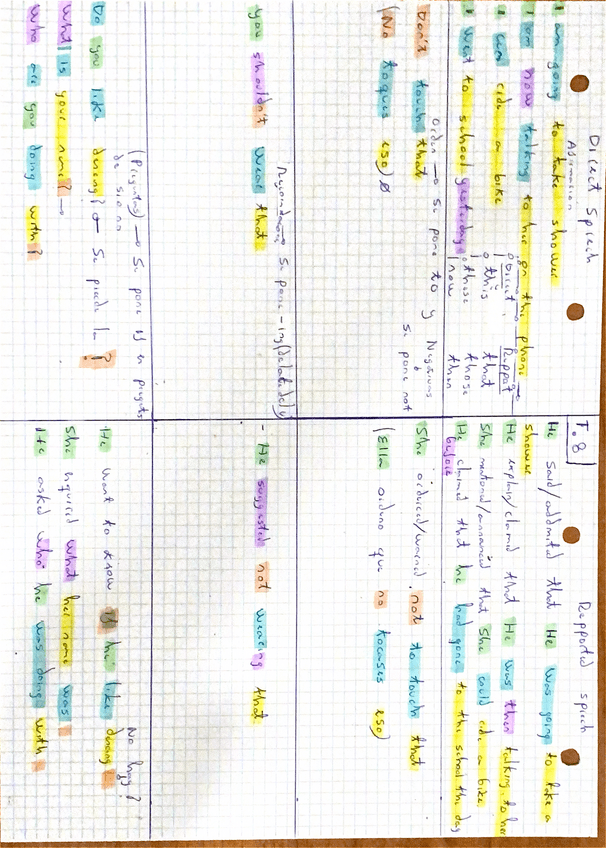 Direct Spiech
Afirmacion
I am going to take shower
I am now talking to her on the phone
I can ride a bike
I went to school yesterday
Direct Repport
this that
these those
now then
Orden → Se pone to y Negativas se pone not
Don't touch that
(No toques eso)
→ Se pone -ing (delante del v)
You shouldn't wear that
(Preguntas) → Se pone if en preguntas de si o no
Do you like dancing? → Se pierde la ?
What is your name? →
Who are you doing with?
T.8
Repported spiech
He said/addmited that He was going to take a shower
He explain/claimed that He was then talking to her
She mentioned/announced that She could ride a bike
He claimed that he had gone to the school the day before
She ordered/warned not to touch that
(Ella ordeno que no tocases eso)
- He suggested not wearing that
No hay ?
He want to know if he like dancing
She inquired what her name was
He asked who he was doing with